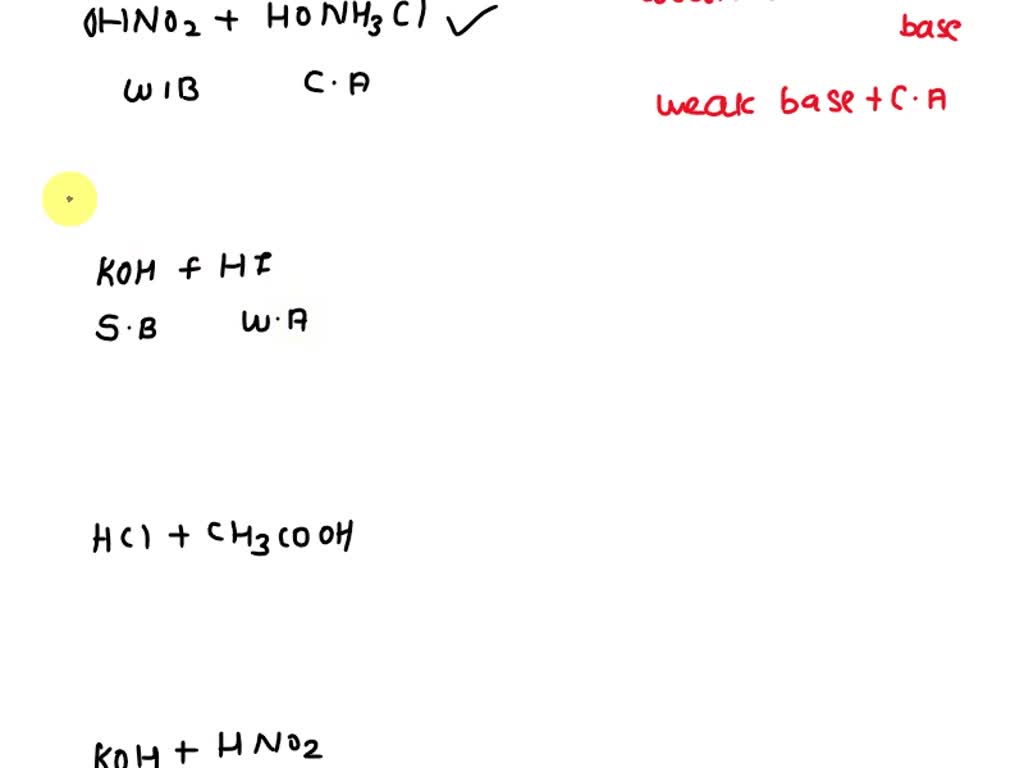 OHNO2 + HONH3Cl ✓
base
W1B C.A
weak base + C.A
KOH + HI
S.B W.A
HCl + CH3COOH
KOH + HNO2